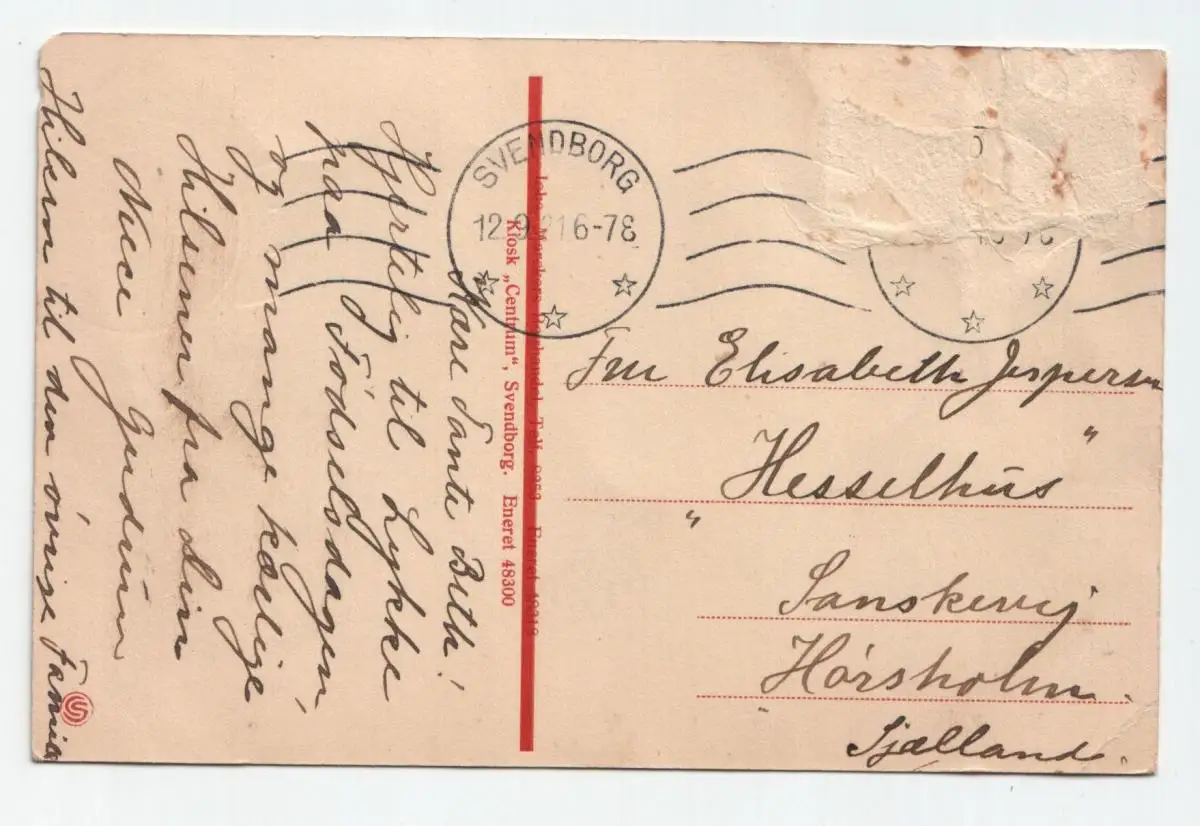 Kære Tante Beth!
Hjertelig til Lykke
paa Födselsdagen
og mange kærlige
Hilsner fra din
Niece Gudrun
Hilsen til den övrige Familie
SVENDBORG
12.9.21 6-7E
Kiosk „Centrum“, Svendborg. Eneret 48300
Fru Elisabeth Jespersen
"Hesselhus"
Hørsholm.
Sjælland.